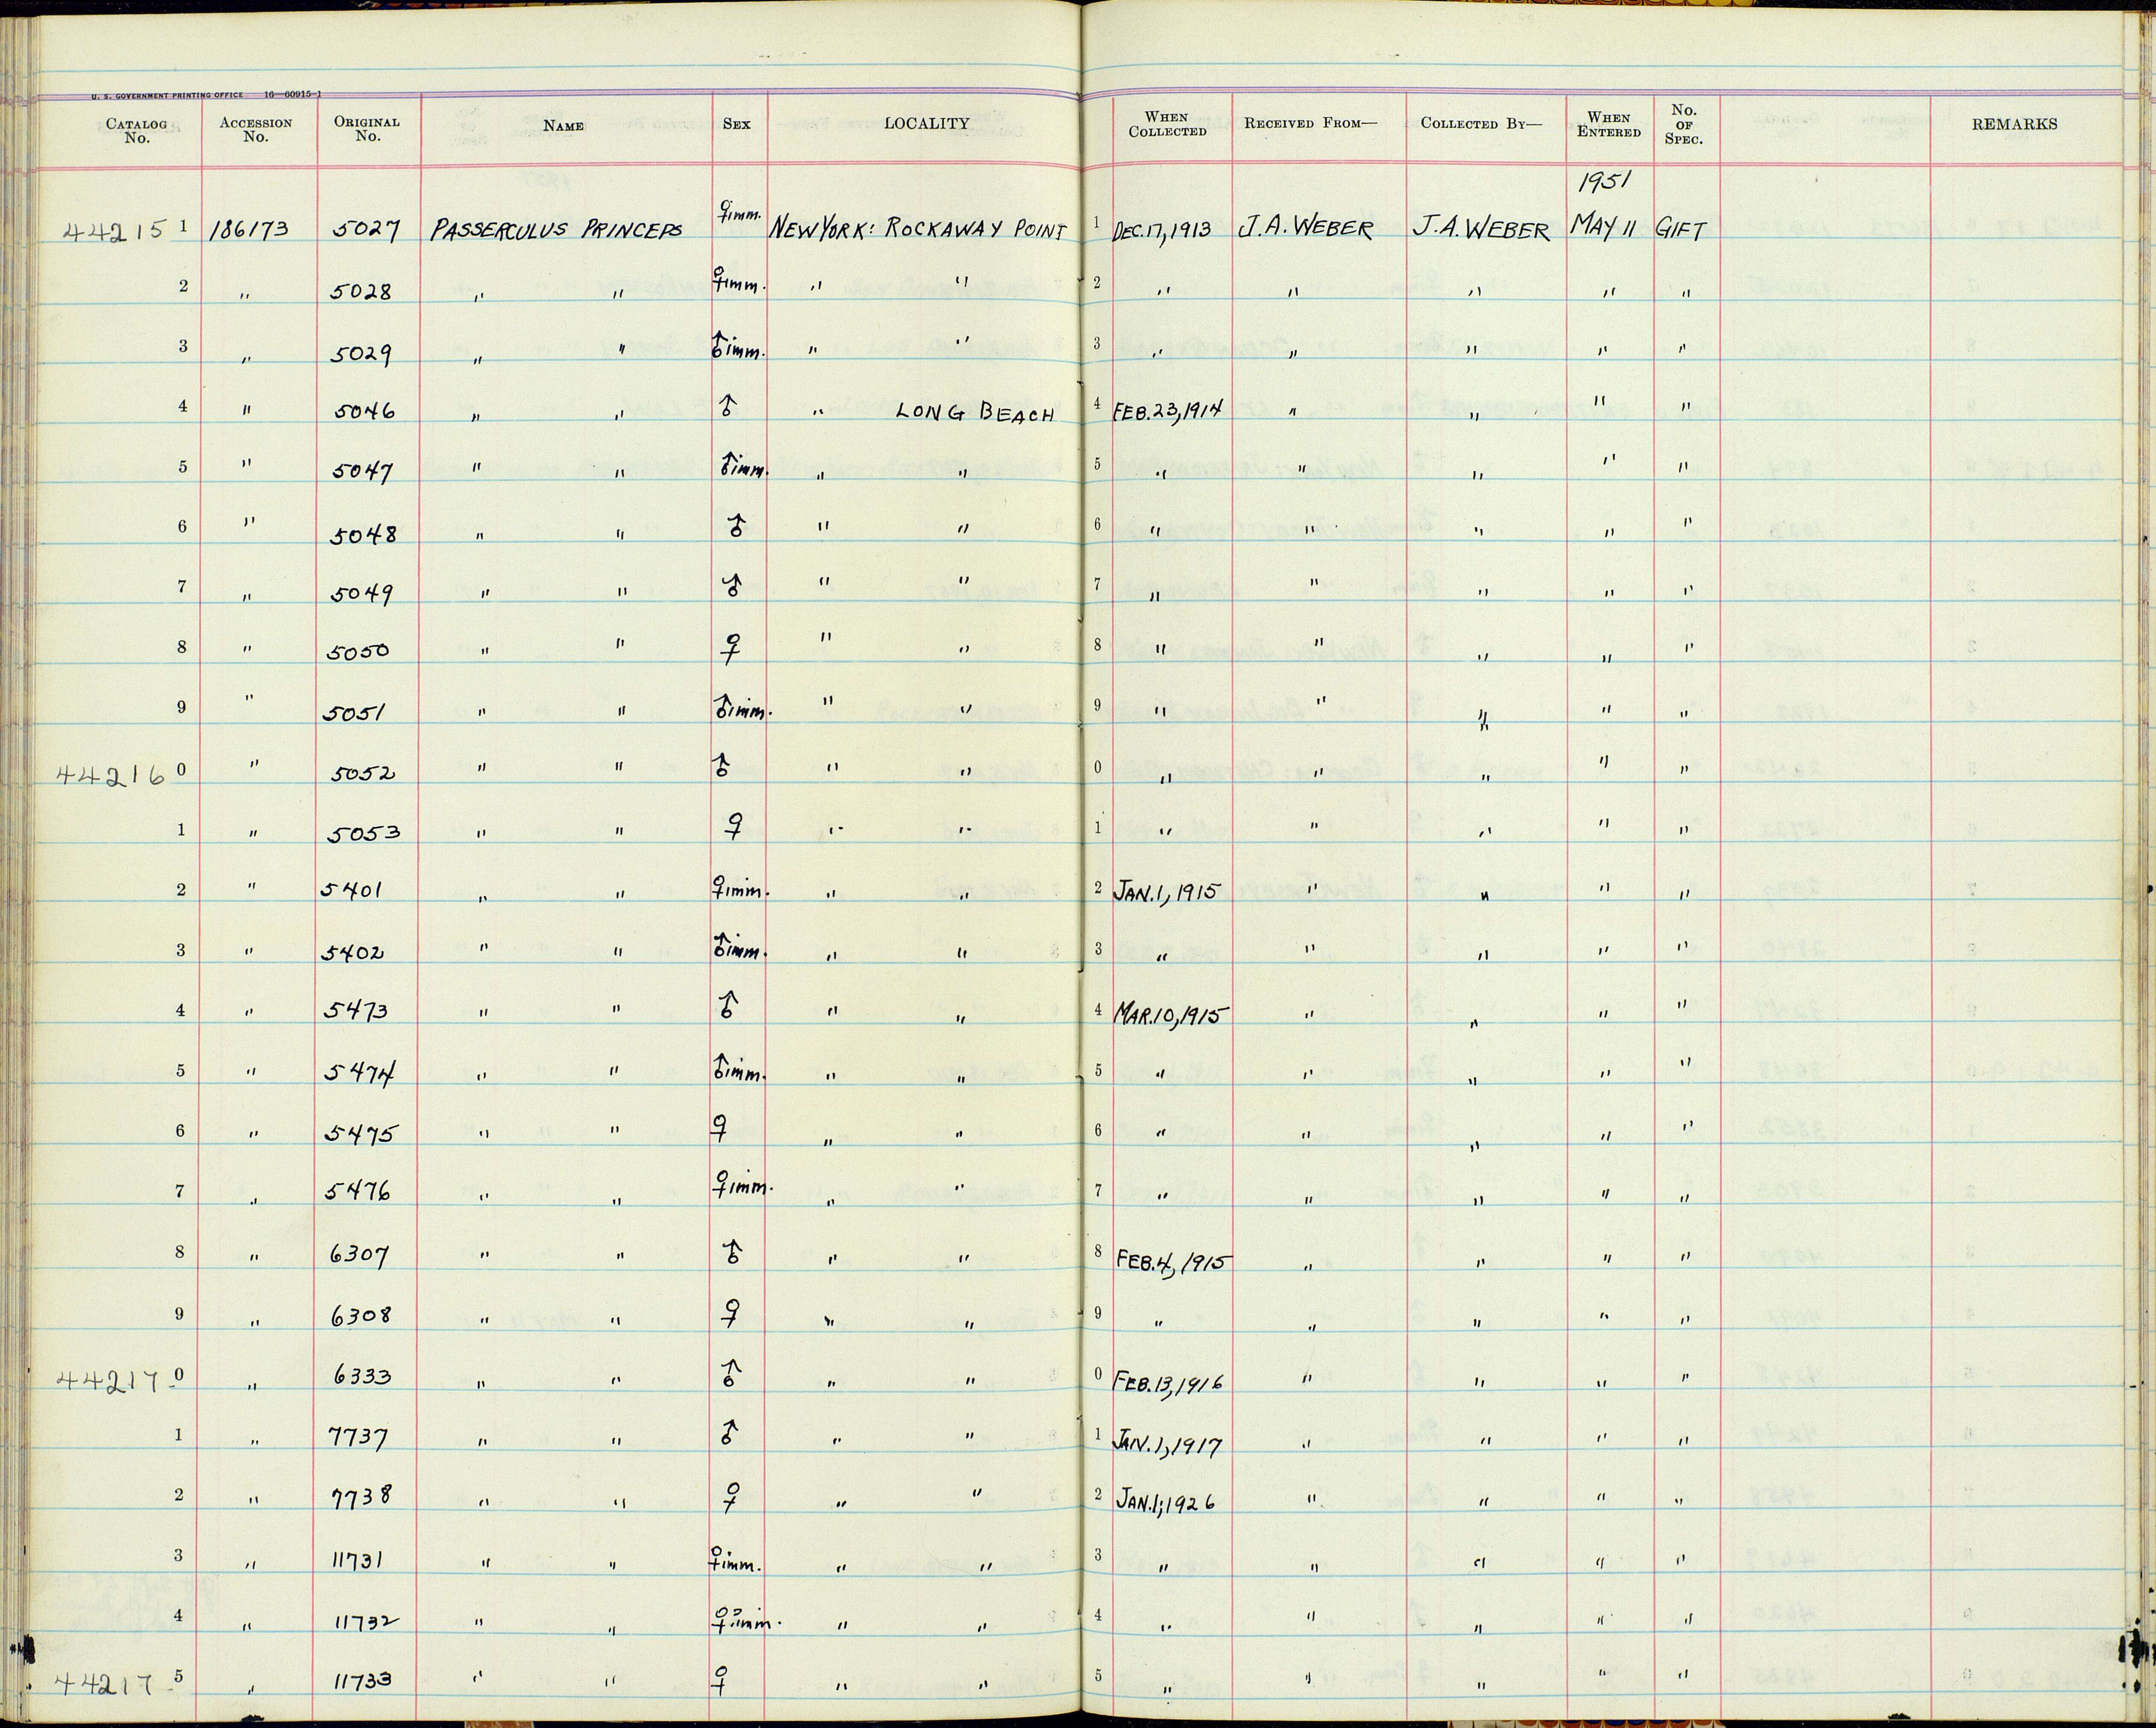 U. S. GOVERNMENT PRINTING OFFICE 16—60915-1
CATALOG No. ACCESSION No. ORIGINAL No. NAME SEX LOCALITY WHEN COLLECTED RECEIVED FROM— COLLECTED BY— WHEN ENTERED No. OF SPEC. REMARKS
1951
44215 1 186173 5027 PASSERCULUS PRINCEPS ♀imm. NEW YORK: ROCKAWAY POINT 1 DEC.17,1913 J.A. WEBER J.A. WEBER MAY 11 GIFT
2 " 5028 " " ♀imm. " " 2 " " " " "
3 " 5029 " " ♂imm. " " 3 " " " " "
4 " 5046 " " ♂ " LONG BEACH 4 FEB.23,1914 " " " "
5 " 5047 " " ♂imm. " " 5 " " " " "
6 " 5048 " " ♂ " " 6 " " " " "
7 " 5049 " " ♂ " " 7 " " " " "
8 " 5050 " " ♀ " " 8 " " " " "
9 " 5051 " " ♂imm. " " 9 " " " " "
44216 0 " 5052 " " ♂ " " 0 " " " " "
1 " 5053 " " ♀ " " 1 " " " " "
2 " 5401 " " ♀imm. " " 2 JAN.1,1915 " " " "
3 " 5402 " " ♂imm. " " 3 " " " " "
4 " 5473 " " ♂ " " 4 MAR.10,1915 " " " "
5 " 5474 " " ♂imm. " " 5 " " " " "
6 " 5475 " " ♀ " " 6 " " " " "
7 " 5476 " " ♀imm. " " 7 " " " " "
8 " 6307 " " ♂ " " 8 FEB.4,1915 " " " "
9 " 6308 " " ♀ " " 9 " " " " "
44217 0 " 6333 " " ♂ " " 0 FEB.13,1916 " " " "
1 " 7737 " " ♂ " " 1 JAN.1,1917 " " " "
2 " 7738 " " ♀ " " 2 JAN.1,1926 " " " "
3 " 11731 " " ♀imm. " " 3 " " " " "
4 " 11732 " " ♀?imm. " " 4 " " " " "
44217 5 " 11733 " " ♀ " " 5 " " " " "